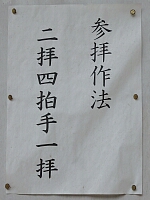 参拝作法
二拝四拍手一拝